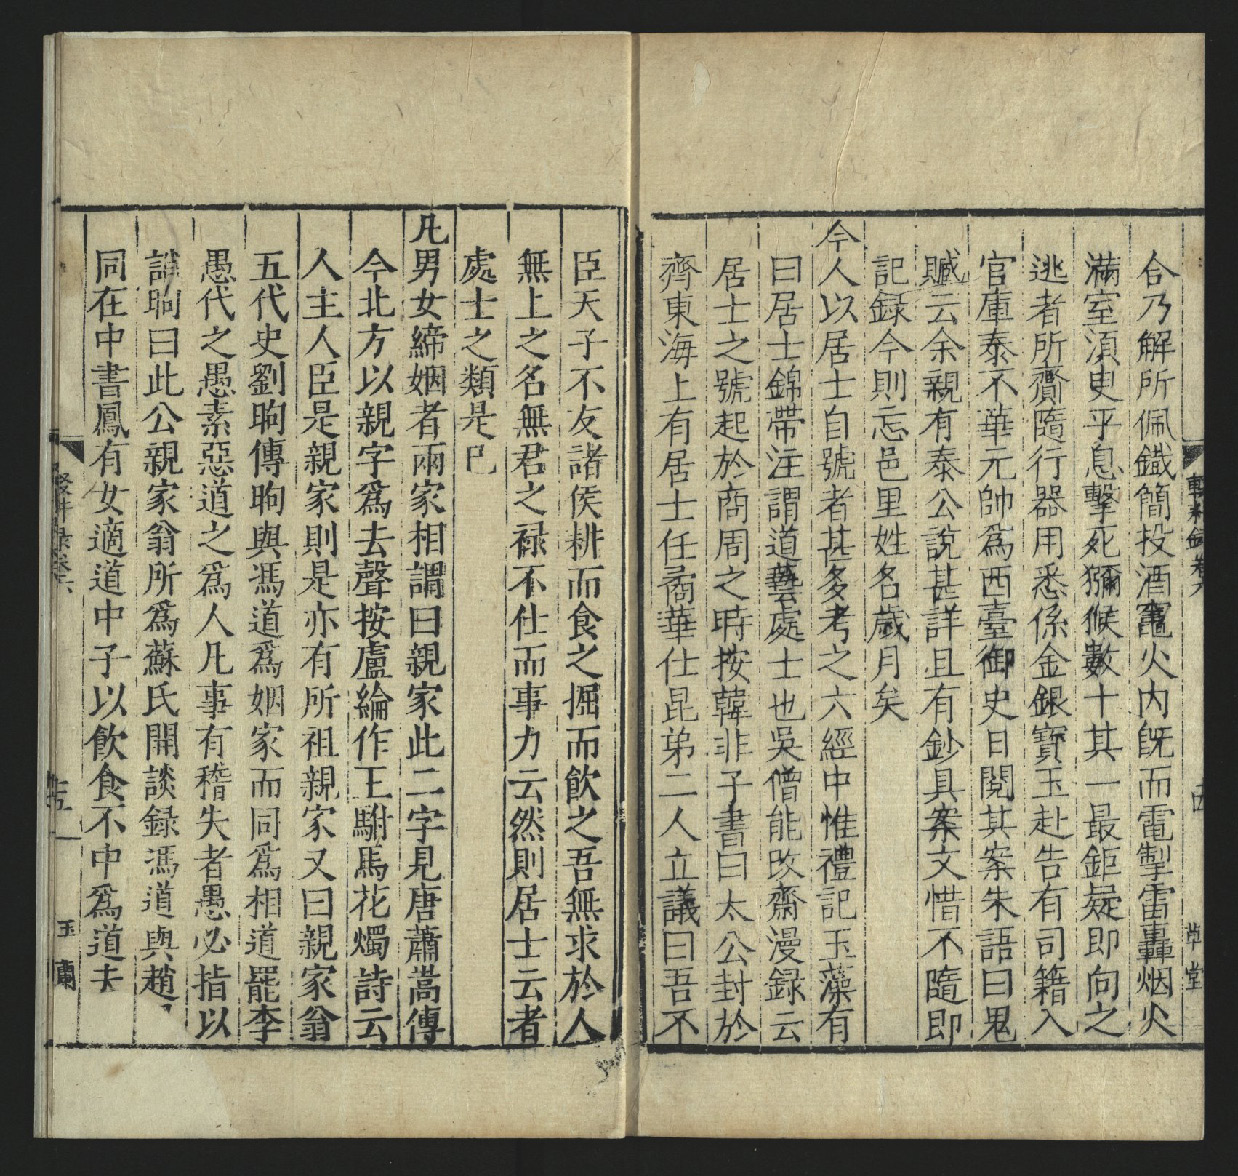 合乃解所佩鐵簡投酒竈火内旣而電掣雷轟烟火
滿室湏臾乎息擊死獼候數十其一最鉅疑即向之
逃者所齎隨行器用悉係金銀寶玉赴告有司籍入
官庫泰不華元帥爲西臺御史日閱其案朱語曰鬼
贓云余親有泰公說甚詳且有鈔具案文惜不隨即
記録今則忘邑里姓名歲月矣
今人以居士自號者甚多考之六經中惟禮記玉藻有
曰居士錦帶注謂道藝處士也吳僧能攺齋漫録云
居士之號起於商周之時按韓非子書曰太公封於
齊東海上有居士任矞華仕昆弟二人立議曰吾不
臣天子不友諸侯耕而食之掘而飲之吾無求於人
無上之名無君之禄不仕而事力云然則居士云者
處士之類是巳
凡男女締姻者兩家相謂曰親家此二字見唐蕭嵩傳
今北方以親字爲去聲按盧綸作王駙馬花燭詩云
人主人臣是親家則是亦有所祖親家又曰親家翁
五代史劉昫傳昫與馮道爲姻家而同爲相道罷李
愚代之愚素惡道之爲人凡事有稽失者愚必指以
誚昫曰此公親家翁所爲蘇氏開談録馮道與趙
同在中書鳳有女適道中子以飲食不中爲道夫